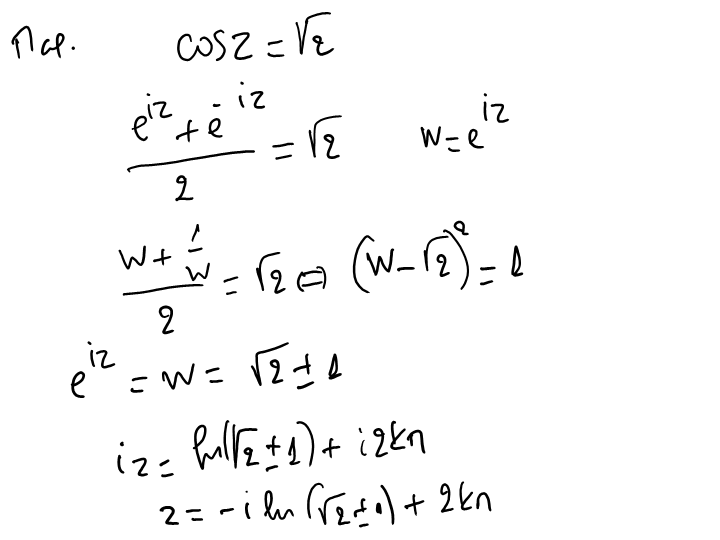 Παρ. cos z = √2
(e^{iz} + e^{-iz})/2 = √2 w = e^{iz}
(w + 1/w)/2 = √2 ⇔ (w - √2)^2 = 1
e^{iz} = w = √2 ± 1
iz = ln(√2 ± 1) + i2kπ
z = -i ln(√2 ± 1) + 2kπ